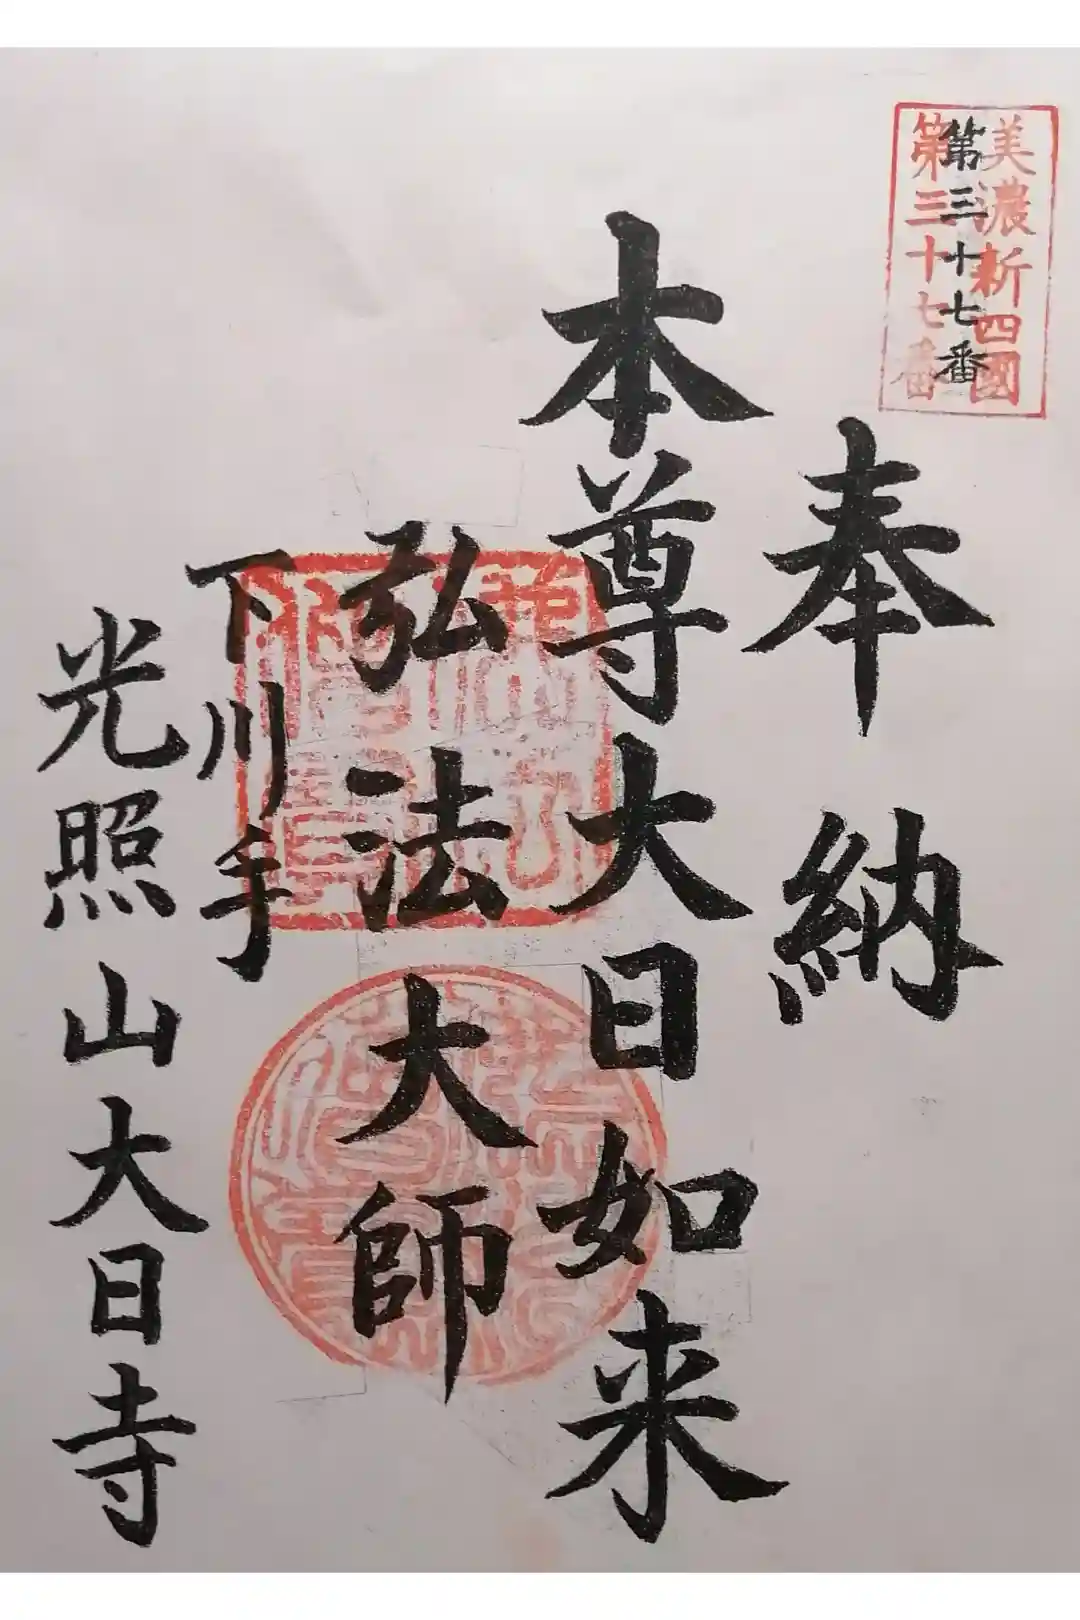 美濃新四國
第三十七番
第三十七番
奉納
本尊大日如来
弘法大師
下川手
光照山大日寺